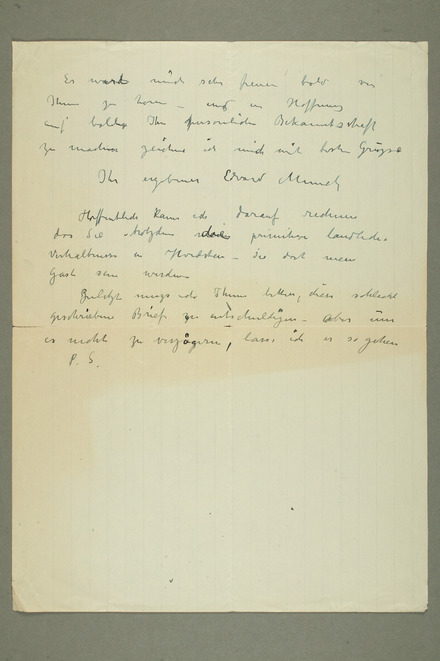 Es würde mich sehr freuen bald von
Ihnen zu hören – und in Hoffnung
auf baldige Ihre persönliche Bekanntschaft
zu machen zeichne ich mich mit besten Grüsse
Ihr ergebener Edvard Munch
Hoffentlich kann ich darauf rechnen
das Sie trotzdem die primitiven landliche
Verhaltniss in Hvidsten – Sie dort mein
Gast sein werden
Zuletzt muss ich Ihnen bitten, diesen schlecht
geschriebene Brief zu entschuldigen – aber um
es nicht zu verzögern, lass ich es so gehen
P. S.